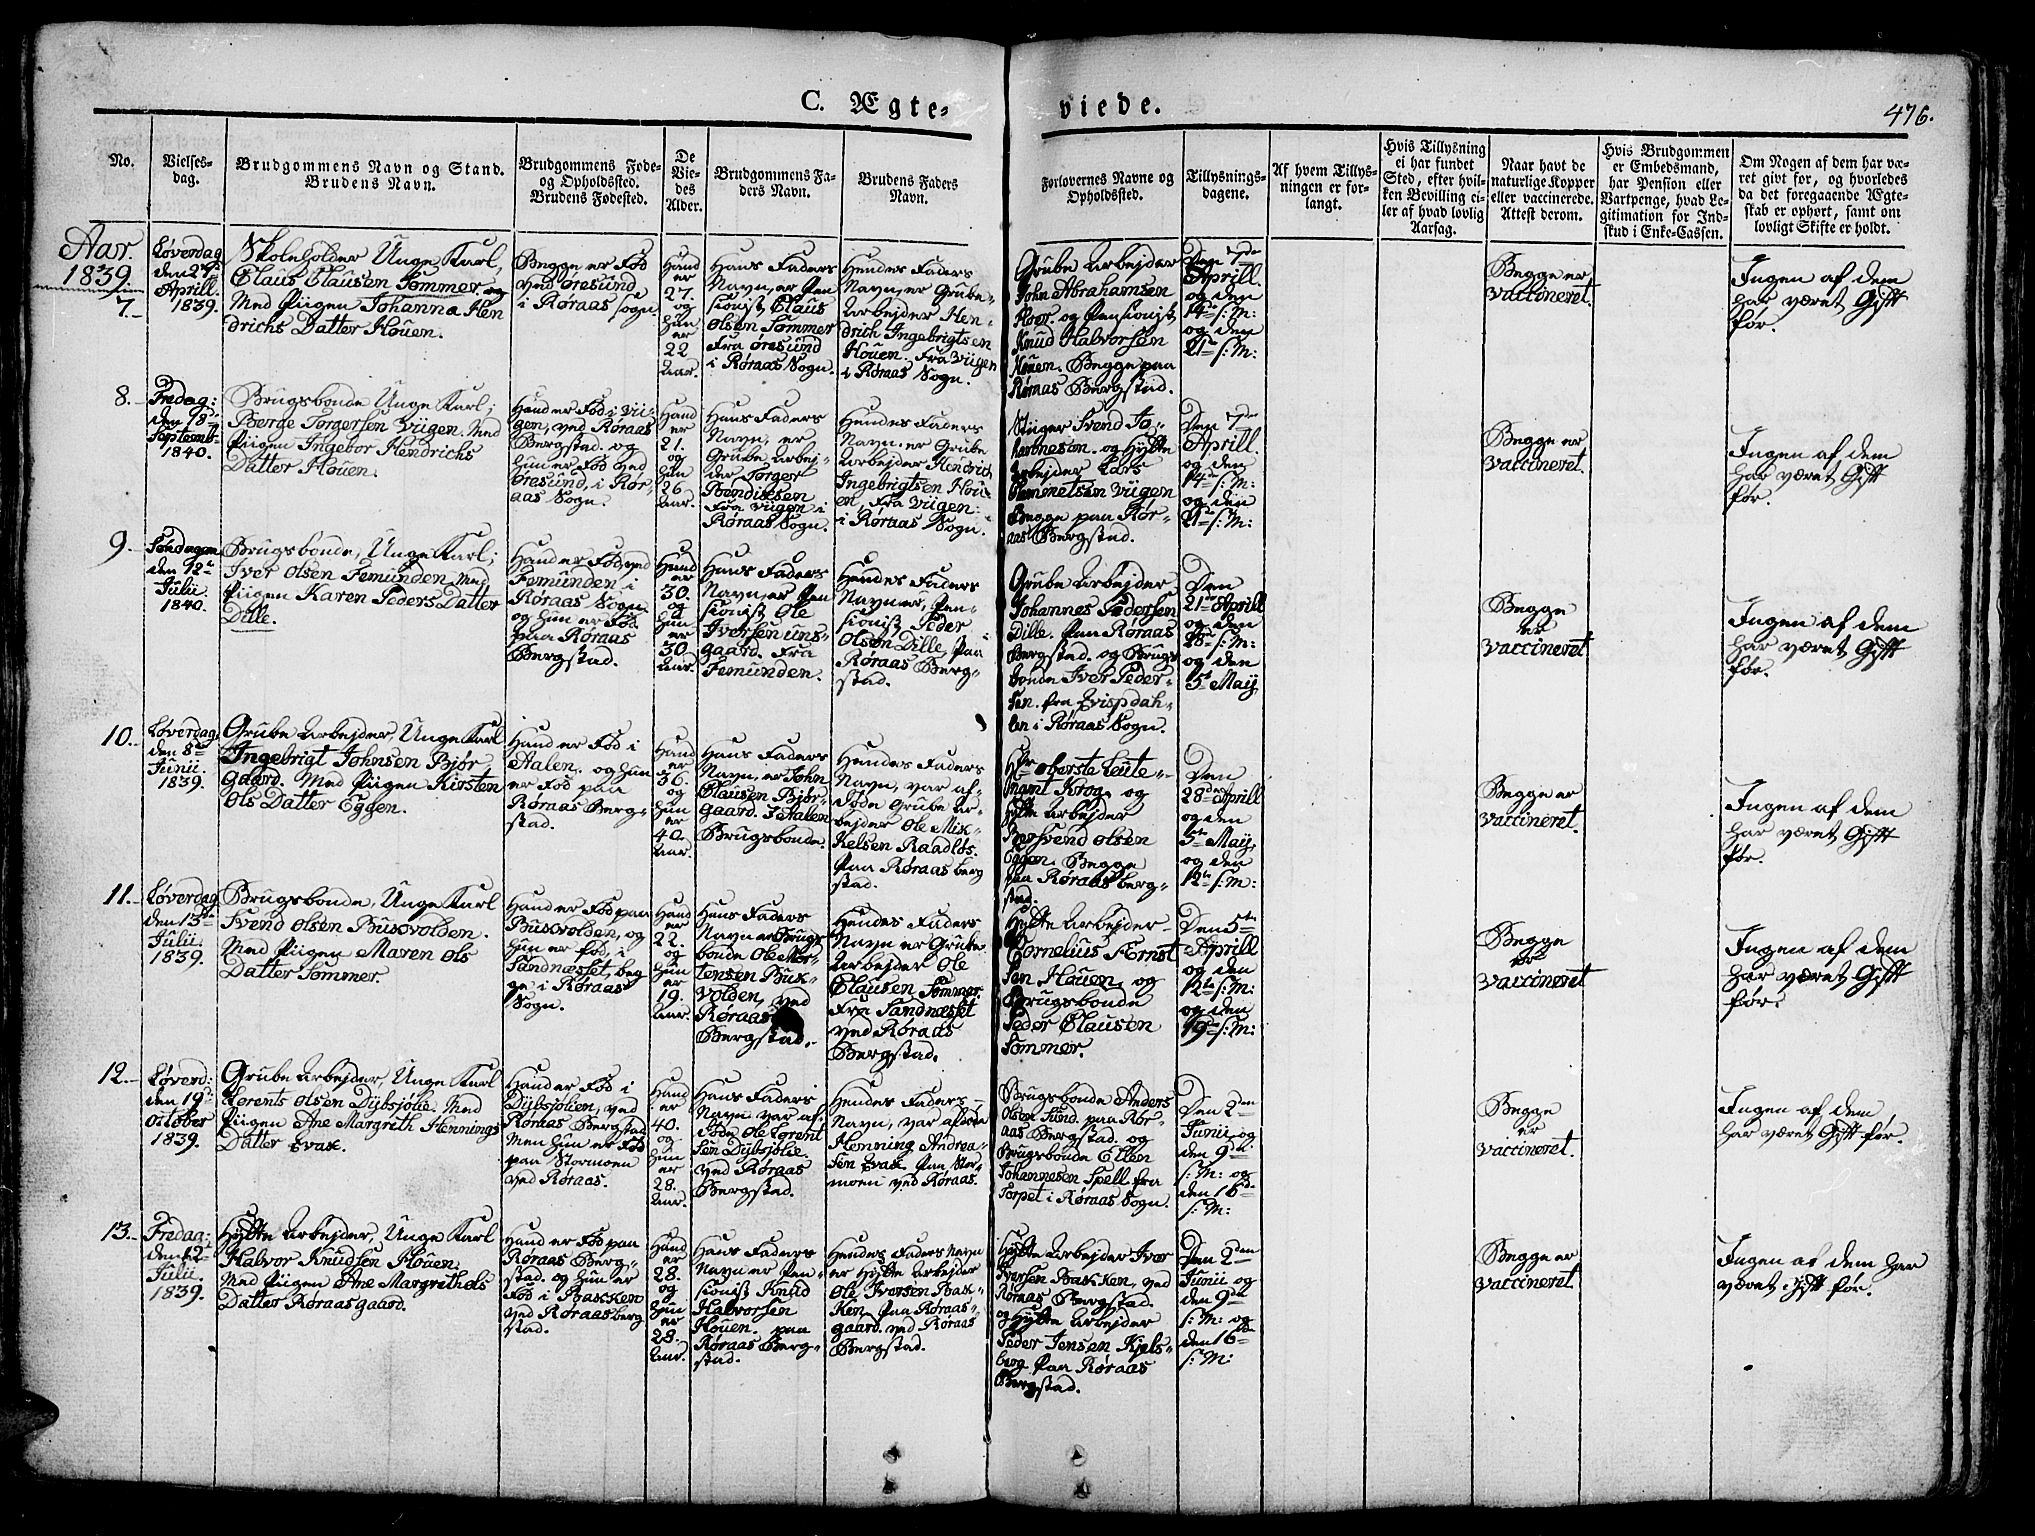 C. Ægte-
viede.
476.
No.
Vielses-
dag.
Brudgommens Navn og Stand.
Brudens Navn.
Brudgommens Føde-
og Opholdssted.
Brudens Fødested.
De
Vie-
des
Alder.
Brudgommens Fa-
ders Navn.
Brudens Faders
Navn.
Forlovernes Navne og
Opholdssted.
Tillysnings-
dagene.
Af hvem Tillys-
ningen er for-
langt.
Hvis Tillysning
ei har fundet
Sted, efter hvil-
ken Bevilling el-
ler af hvad lovlig
Aarsag.
Naar havt de
naturlige Kopper
eller vaccinerede.
Attest derom.
Hvis Brudgommen
er Embedsmand,
har Pension eller
Vartpenge, hvad Le-
gitimation for Ind-
skud i Enke-Cassen.
Om Nogen af dem har væ-
ret gift før, og hvorledes
da det foregaaende Ægte-
skab er ophørt, samt om
lovligt Skifte er holdt.
Aar.
1839
7.
Løverdag
den 27de
Aprill.
1839.
Skoleholder Unge Karl,
Claus Clausen Sommer. og
Med Piigen Johanna Hen
drichs Datter Houen.
Begge er Fød
ved Øresund
i Røraas Sogn.
Hand
er
27.
og
hun
er
22
Aar.
Hans Faders
Navn, er Pen
sionist Claus
Olsen Sommer
Fra Øresund
i Røraas Sogn.
Hendes Faders
Navn, er Grube-
Arbejder Hen-
drich Ingebrigtsen
Houen. Fra Viigen
i Røraas Sogn.
Grube Arbejder
John Abrahamsen
Floor. og Pensionist
Knud Halvorsen
Houen. Begge paa
Røraas Bergstad.
Den 7de
Aprill.
og den
14de s: M:
og den
21de s: M:
Begge er
vaccineret.
Ingen af dem
har været Gift
før.
8.
Fredag:
den 18de
Septembr
1840.
Brugsbonde Unge Karl;
Berge Torgersen Viigen. Med
Piigen Ingebor Hendrichs
Datter Houen.
Hand er Fød i Vii-
gen, ved Røraas
Bergstad. og
hun er Fød ved
Øresund, i Rør-
aas Sogn.
Hand
er
21.
og
hun
26.
Aar.
Hans Faders
Navn, er
Grube Arbej-
der Torger
Bendixsen
Fra Viigen i
Røraas Sogn.
Hendes Faders
Navn, er Grube
Arbejder Hendrich
Ingebrigtsen Hou-
en, Fra Viigen:
i Røraas Sogn.
Stiger Svend Jo-
hannesen, og Hytte
Arbejder Lars
Viigen
Begge paa Rør-
aas Bergstad.
Den 7de
Aprill.
og den
14de s: M:
og den
21de s: M:
Begge er
vaccineret.
Ingen af dem
har været Gift
før.
9.
Søndagen
den 12te
Julii.
1840.
Brugsbonde, Unge Karl;
Iver Olsen Femunden, Med
Piigen Karen Peders Datter
Dille.
Hand er Fød, ved
Femunden i
Røraas Sogn.
og hun er Fød
paa Røraas
Bergstad.
Hand
er
30.
og
hun
er
30.
Aar.
Hans Faders
Navn, er Pen
sionist Ole
Iversen
Fra
Femunden.
Hendes Faders
Navn er, Pen-
sionist Peder
Olsen Dille, paa
Røraas Berg-
stad.
Grube Arbejder
Johannes Pedersen
Dille. paa Røraas
Bergstad. og Brugs
bonde Iver Peder-
sen. fra
i Røraas Sogn.
Den
21de Aprill
og den
28de s: M:
og den
5te Maij
Begge
er
vaccineret
Ingen af dem
har været Gift
før.
10.
Løverdag,
den 8de
Junii.
1839.
Grube Arbejder, Unge Karl
Ingebrigt Johnsen Bjør
gaard. Med Piigen Kirsten
Ols Datter Eggen.
Hand er Fød i
Aalen. og hun
er Fød paa
Røraas Berg-
stad.
Hand
er
36.
og
hun
er
40.
Aar.
Hans Faders
Navn, er John
Clausen Bjør-
gaard. I Aalen
Brugsbonde.
Hendes Faders
Navn, var af-
døde Grube Ar-
bejder Ole Mik-
kelsen Raadløs.
Paa Røraas berg
stad.
Hr Oberste Leute-
nant Krog, og
Hytte Arbejder
Svend Olsen
Eggen. Begge
paa Røraas berg-
stad.
Den
28de Aprill
og den
5te Maij,
og den
12te s: M:
Begge er
vaccineret.
Ingen af dem
har været Gift
før.
11.
Løverdag
den 13de
Julii.
1839.
Brugsbonde, Unge Karl
Svend Olsen Buxvolden.
Med Piigen Maren Ols
Datter Sommer.
Hand er Fød paa
Buxvolden, og
hun er Fød, i
Sandnæsset, beg
ge i Røraas
Sogn.
Hand
er
22.
og
hun
er
19.
Aar.
Hans Faders
Navn er Brugs
bonde Ole Mor-
tensen Bux-
volden, ved
Røraas
Bergstad.
Hendes Faders
Navn er Grube
Arbejder Ole
Clausen Sommer
Fra Sandnæsset
ved Røraas
Bergstad.
Hytte Arbejder
Cornelius Ernst
sen Houen, og
Brugsbonde
Peder Clausen
Sommer.
Den 5te
Aprill
og den
12te s: M:
og den
19de s: M:
Begge
er
vaccineret
Ingen af dem
har været Gift
før.
12.
Løverd:
den 19de
October
1839.
Grube Arbejder, Unge Karl
Lorents Olsen Dybsjølie. Med
Piigen Ane Margrith Hennings
Datter Evax.
Hand er Fød i
Dybsjølien, ved
Røraas Bergstad
Men hun er Fød
paa Stormoen
ved Røraas.
Hand
er
40.
og
hun
er
28.
Aar.
Hans Faders
Navn var af
døde Ole Lorent
sen Dybsjølie.
ved Røraas
Bergstad.
Hendes Faders
Navn, var afdøde
Henning Andrea-
sen Evax paa Stor-
moen ved Røraas.
Brugsbonde Anders
Olsen Sund. paa Rør-
aas Bergstad. og
Brugsbonde Ellen
Johannesen Spell. fra
Torpet i Røraas Sogn.
Den 2den
Junii og
den 9de
s: M: og
den 16de
s: M:
Begge
er
vaccineret.
Ingen af dem
har været Gift før.
13.
Fredag,
den 12te
Julii.
1839.
Hytte Arbejder, Unge Karl
Halvor Knudsen Houen.
Med Piigen Ane Margrethe Ols
Datter Røraasgaard.
Hand er Fød paa
Røraas Berg-
stad. og hun er
Fød i Bakken
ved Røraas berg
stad.
Hand
er
28.
og
hun
er
28.
Aar.
Hans Faders
Navn er Pen-
sionist Knud
Halvorsen
Houen. paa
Røraas Berg-
stad.
Hendes Faders Navn
er Hytte Arbejder
Ole Iversen Bak-
ken, paa Røraas-
gaard. ved Røraas
Bergstad.
Hytte Arbejder Iver
Iversen Bakken, ved
Røraas Bergstad.
og Hytte Arbejder
Peder Jensen Kjels-
berg paa Røraas
Bergstad.
Den 2den
Junii og
den 9de
s: M: og
den 16de
s: M:
Begge er
vaccineret.
Ingen af dem har
været gift før.